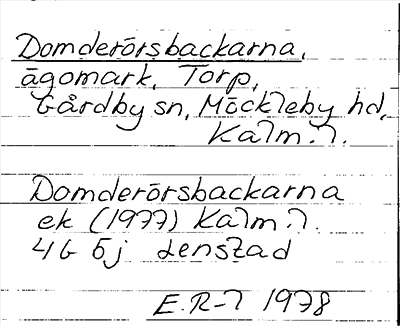 Domderörsbackarna,
ägomark, Torp,
Gårdby sn, Möckleby hd,
Kalm. l.
Domderörsbackarna
ek (1977) Kalm. l.
4G 5j Lenstad
E.R-l 1978